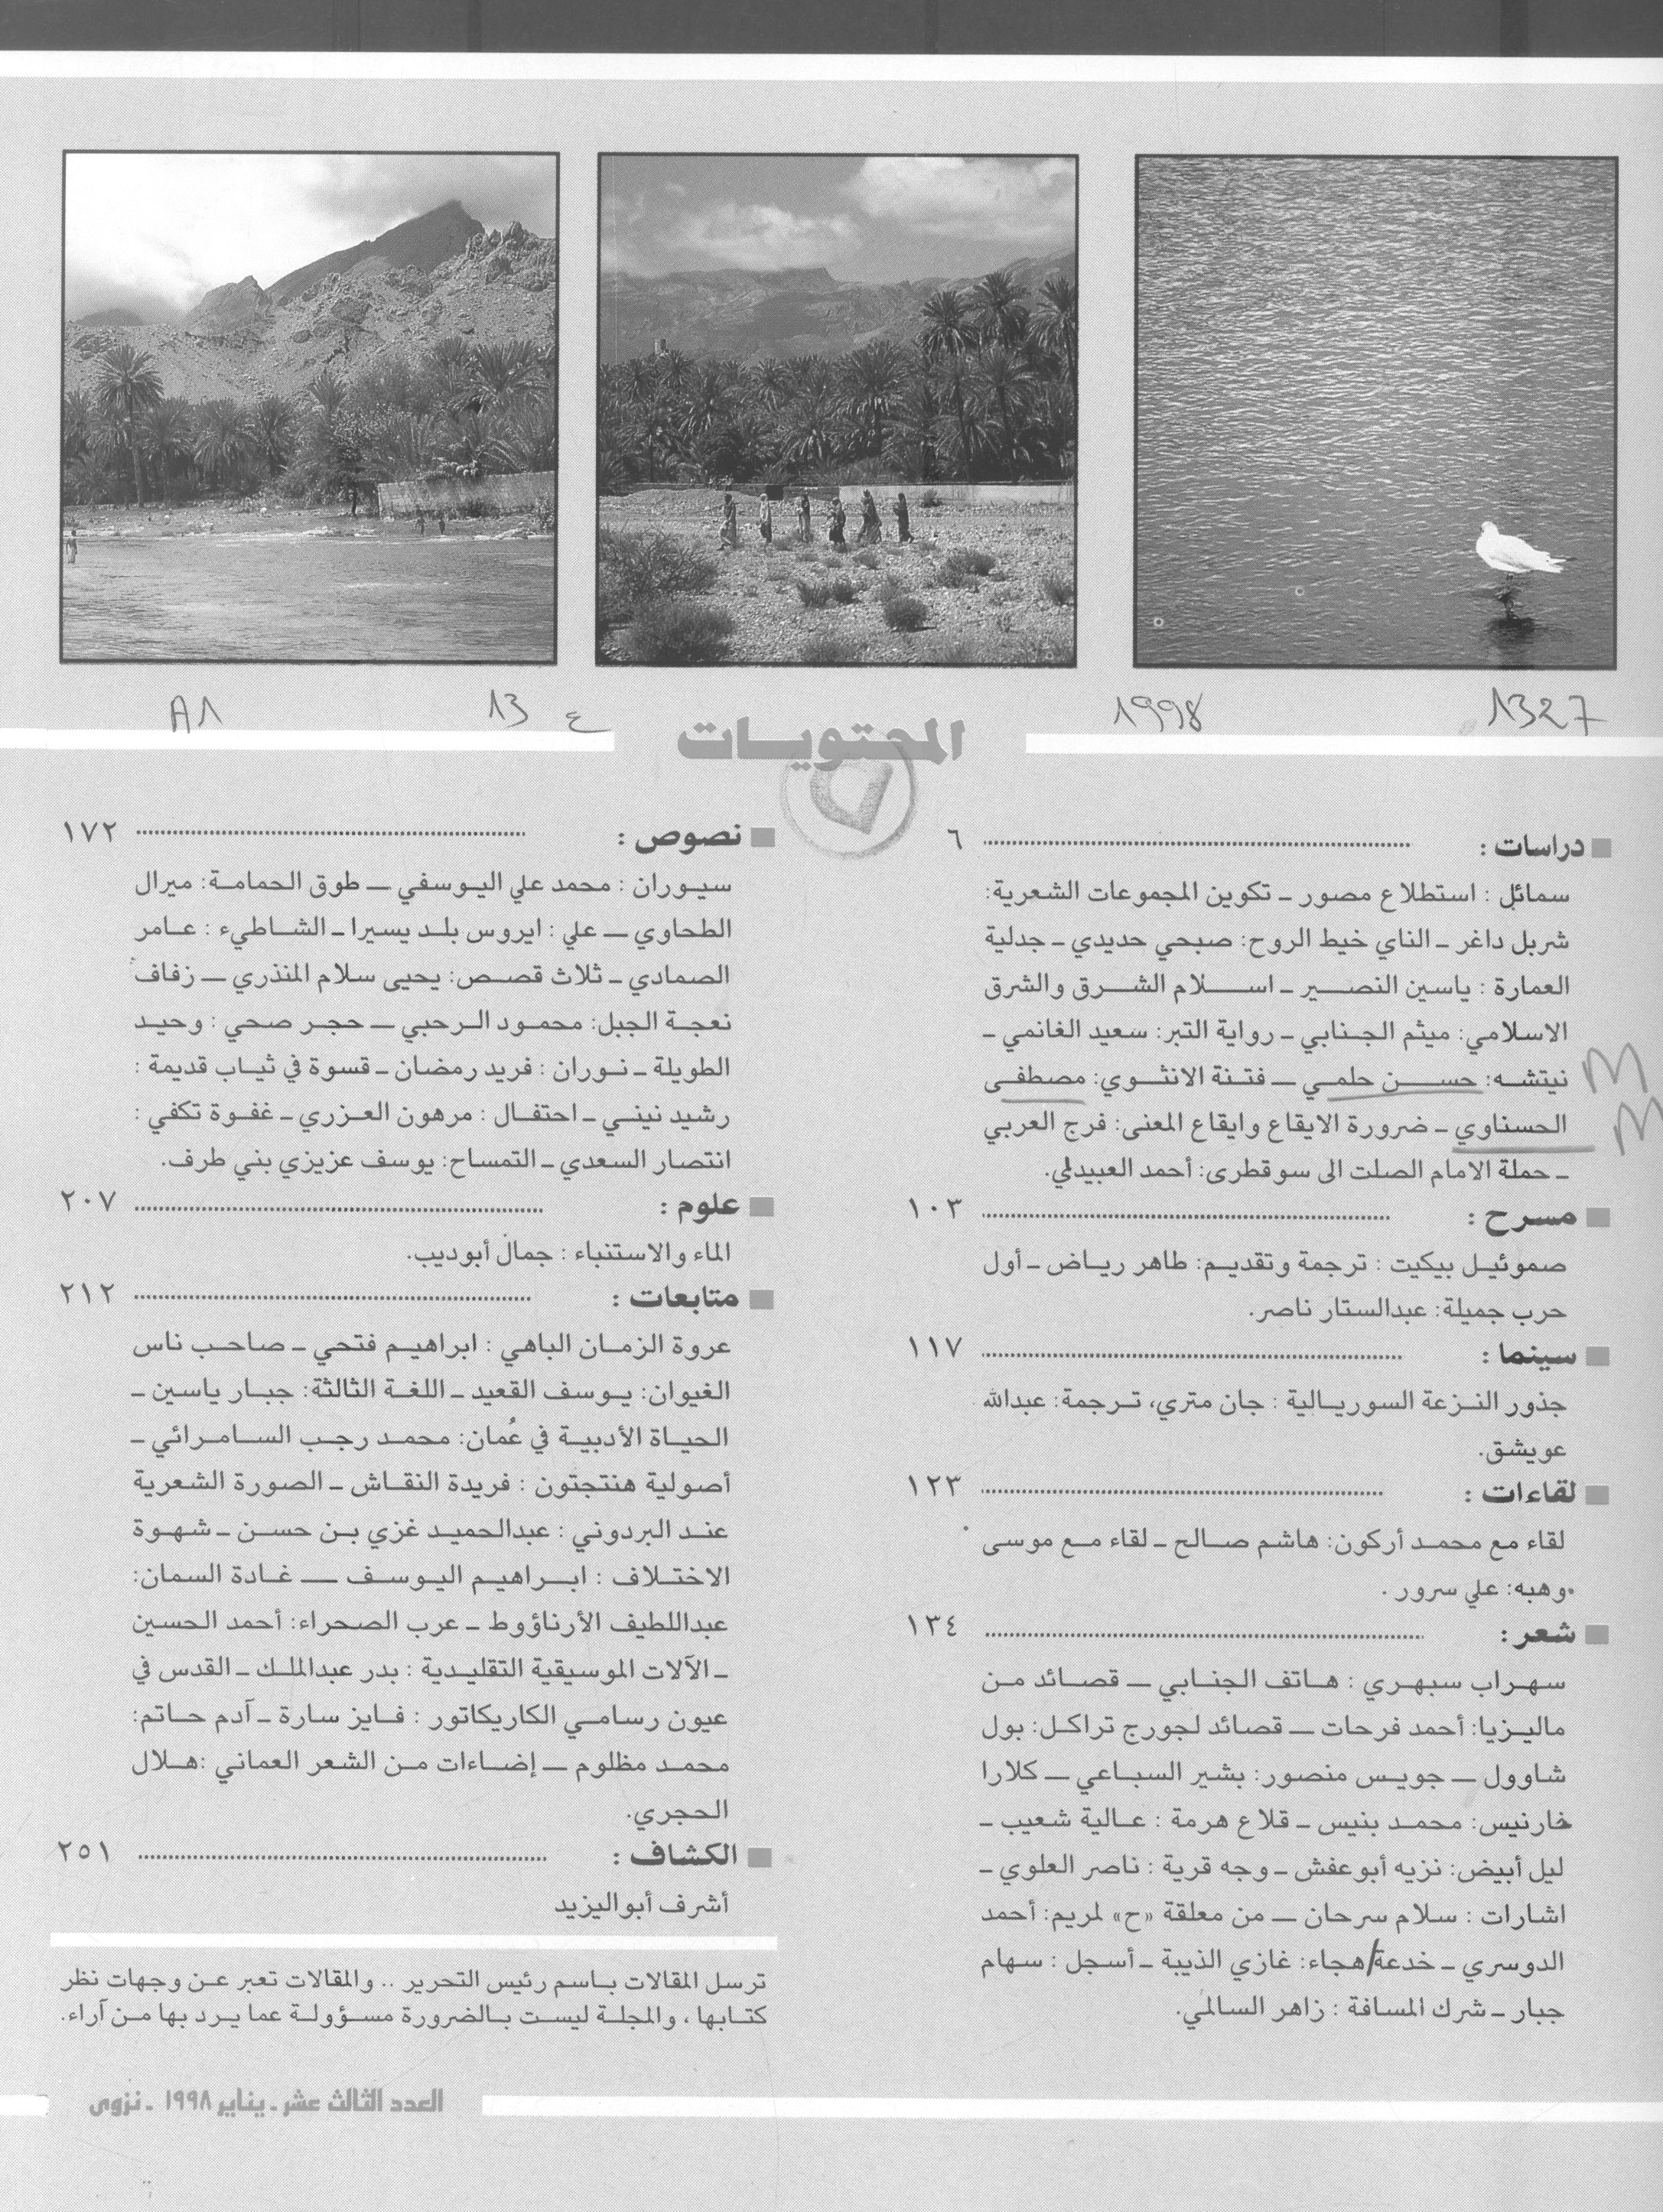 1327
1998
ع 13
A1
المحتويات
دراسات : ٦
سمائل : استطلاع مصور ـ تكوين المجموعات الشعرية:
شربل داغر ـ الناي خيط الروح: صبحي حديدي ـ جدلية
العمارة : ياسين النصير ـ اسلام الشرق والشرق
الاسلامي: ميثم الجنابي ـ رواية التبر: سعيد الغانمي ـ
نيتشه: حسن حلمي ـ فتنة الانثوي: مصطفى
الحسناوي ـ ضرورة الايقاع وايقاع المعنى: فرج العربي
ـ حملة الامام الصلت الى سوقطرى: أحمد العبيدلي.
مسرح : ١٠٣
صموئيل بيكيت : ترجمة وتقديم: طاهر رياض ـ أول
حرب جميلة: عبدالستار ناصر.
سينما : ١١٧
جذور النزعة السوريالية : جان متري، ترجمة: عبدالله
عويشق.
لقاءات : ١٢٣
لقاء مع محمد أركون: هاشم صالح ـ لقاء مع موسى
وهبه: علي سرور .
شعر : ١٣٤
سهراب سبهري : هاتف الجنابي ـ قصائد من
ماليزيا: أحمد فرحات ـ قصائد لجورج تراكل: بول
شاوول ـ جويس منصور: بشير السباعي ـ كلارا
خارنيس: محمد بنيس ـ قلاع هرمة : عالية شعيب ـ
ليل أبيض: نزيه أبوعفش ـ وجه قرية : ناصر العلوي ـ
اشارات : سلام سرحان ـ من معلقة «ح» لمريم: أحمد
الدوسري ـ خدعة/هجاء: غازي الذيبة ـ أسجل : سهام
جبار ـ شرك المسافة : زاهر السالمي.
نصوص : ١٧٢
سيوران : محمد علي اليوسفي ـ طوق الحمامة: ميرال
الطحاوي ـ علي : ايروس بلد يسيرا ـ الشاطيء : عامر
الصمادي ـ ثلاث قصص: يحيى سلام المنذري ـ زفاف
نعجة الجبل: محمود الرحبي ـ حجر صحي : وحيد
الطويلة ـ نوران : فريد رمضان ـ قسوة في ثياب قديمة :
رشيد نيني ـ احتفال : مرهون العزري ـ غفوة تكفي :
انتصار السعدي ـ التمساح: يوسف عزيزي بني طرف.
علوم : ٢٠٧
الماء والاستنباء : جمال أبوديب.
متابعات : ٢١٢
عروة الزمان الباهي : ابراهيم فتحي ـ صاحب ناس
الغيوان: يوسف القعيد ـ اللغة الثالثة: جبار ياسين ـ
الحياة الأدبية في عُمان: محمد رجب السامرائي ـ
أصولية هنتجتون : فريدة النقاش ـ الصورة الشعرية
عند البردوني : عبدالحميد غزي بن حسن ـ شهوة
الاختلاف : ابراهيم اليوسف ـ غادة السمان:
عبداللطيف الأرناؤوط ـ عرب الصحراء: أحمد الحسين
ـ الآلات الموسيقية التقليدية : بدر عبدالملك ـ القدس في
عيون رسامي الكاريكاتور : فايز سارة ـ آدم حاتم:
محمد مظلوم ـ إضاءات من الشعر العماني :هلال
الحجري.
الكشاف : ٢٥١
أشرف أبواليزيد
ترسل المقالات باسم رئيس التحرير .. والمقالات تعبر عن وجهات نظر
كتابها ، والمجلة ليست بالضرورة مسؤولة عما يرد بها من آراء.
العدد الثالث عشر ـ يناير ١٩٩٨ ـ نزوى
M
M